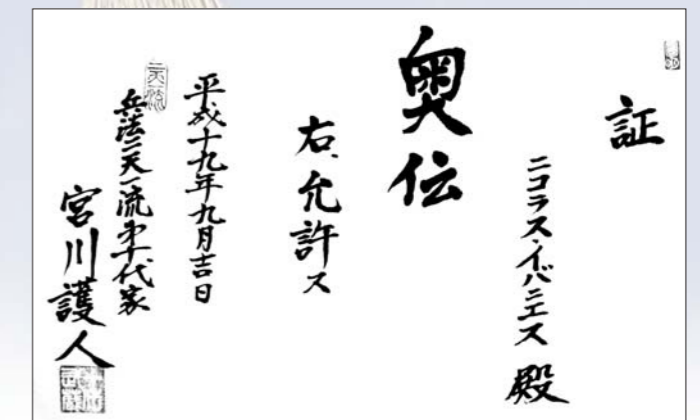 証
ニコラス・イバニエス 殿
奥伝
右、允許ス
平成十九年九月吉日
兵法二天一流第十代家
宮川護人